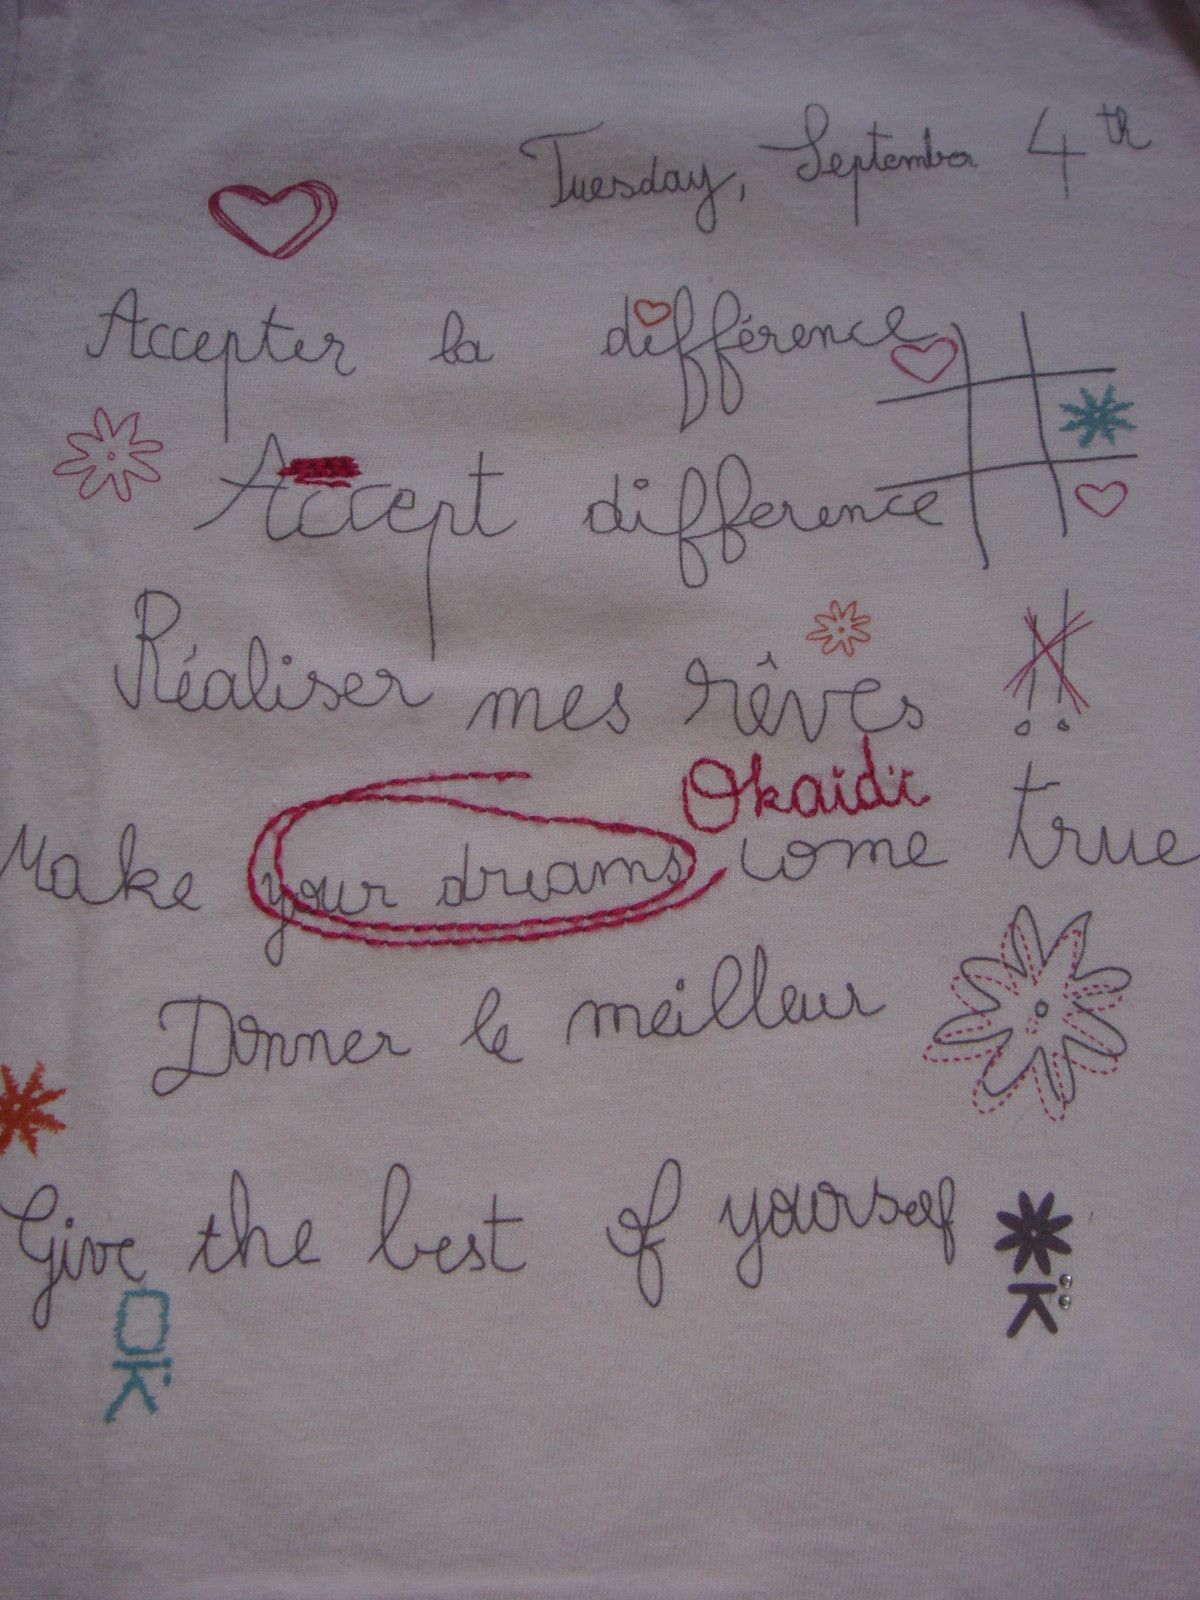 Tuesday, September 4th
Accepter la différence
Accept difference
Réaliser mes rêves !!
Okaïdi
Make your dreams come true
Donner le meilleur
Give the best of yourself
OK
K